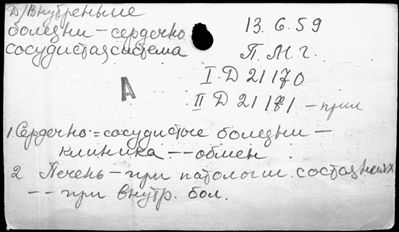 Д/Внутренные
болезни - сердечно
сосудистая система
13.6.59
П.М.г.
I Д 21170
II Д 21171 - прил
А
1. Сердечно-=сосудистые болезни -
клиника -- обмен
2 Печень - при патологии. состояниях
-- при внутр. бол.